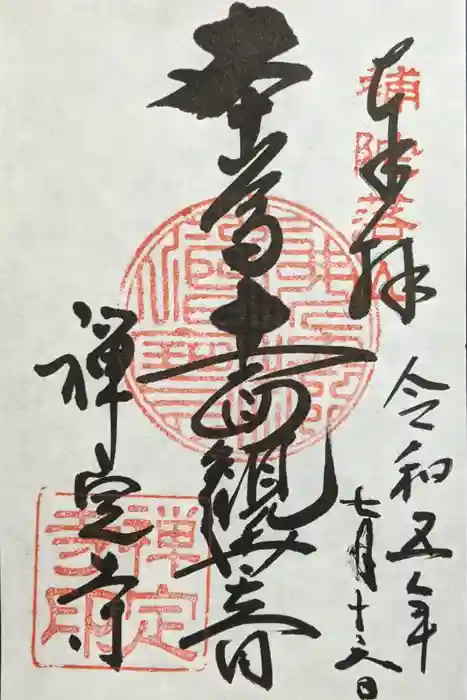 奉拝
補陀落山
令和五年
七月十六日
本尊十一面観世音
禅定寺
禅定寺印